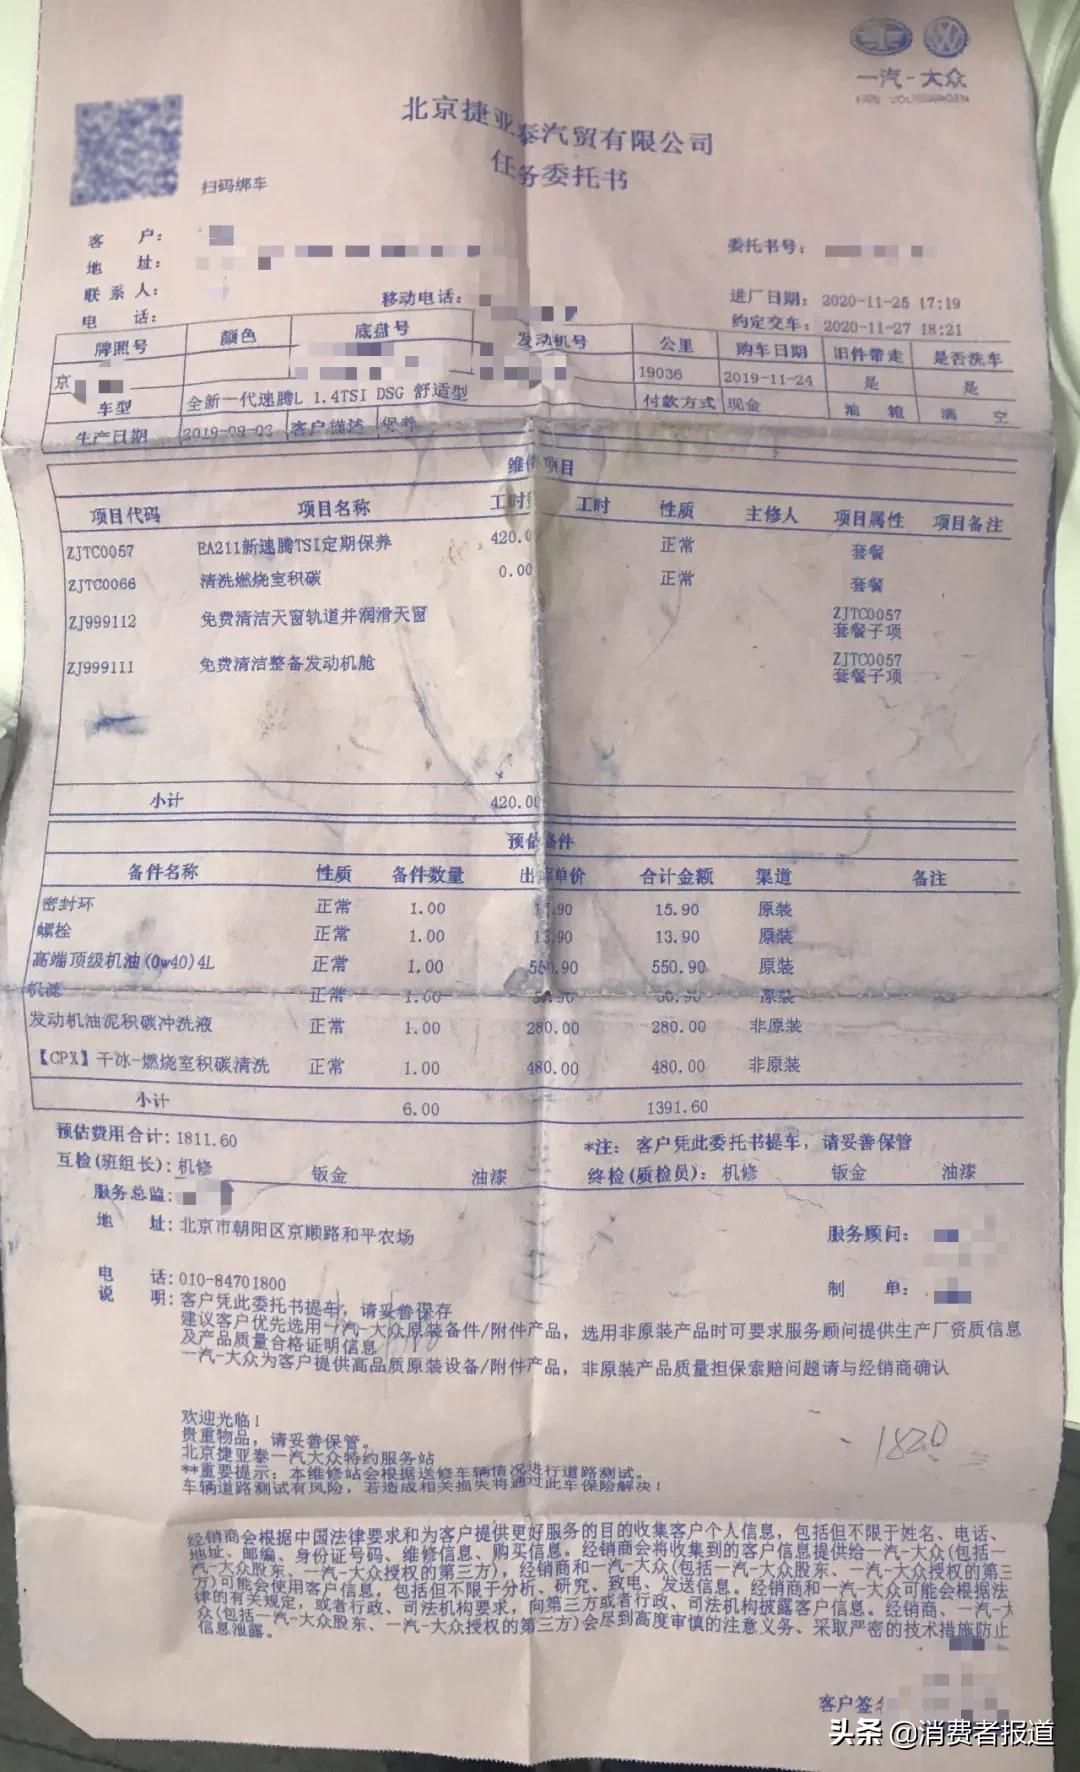 一汽-大众
FAW-VOLKSWAGEN
北京捷亚泰汽贸有限公司
任务委托书
扫码绑车
客 户:
地 址:
委托书号:
联系人:
移动电话:
进厂日期: 2020-11-25 17:19
电 话:
约定交车: 2020-11-27 18:21
牌照号 颜色 底盘号 发动机号 公里 购车日期 旧件带走 是否洗车
京 19036 2019-11-24 是 是
车型 全新一代速腾L 1.4TSI DSG 舒适型 付款方式 现金 油 箱 满 空
生产日期 2019-09-03 客户描述 保养
维修项目
项目代码 项目名称 工时费 工时 性质 主修人 项目属性 项目备注
ZJTC0057 EA211新速腾TSI定期保养 420.0 正常 套餐
ZJTC0066 清洗燃烧室积碳 0.00 正常 套餐
ZJ999112 免费清洁天窗轨道并润滑天窗 ZJTC0057
套餐子项
ZJ999111 免费清洁整备发动机舱 ZJTC0057
套餐子项
小计 420.00
预估备件
备件名称 性质 备件数量 出库单价 合计金额 渠道 备注
密封环 正常 1.00 15.90 15.90 原装
螺栓 正常 1.00 13.90 13.90 原装
高端顶级机油(0w40)4L 正常 1.00 550.90 550.90 原装
机滤 正常 1.00 50.90 50.90 原装
发动机油泥积碳冲洗液 正常 1.00 280.00 280.00 非原装
【CPX】干冰-燃烧室积碳清洗 正常 1.00 480.00 480.00 非原装
小计 6.00 1391.60
预估费用合计: 1811.60 *注: 客户凭此委托书提车, 请妥善保管
互检(班组长): 机修 钣金 油漆 终检(质检员): 机修 钣金 油漆
服务总监:
地 址: 北京市朝阳区京顺路和平农场 服务顾问:
电 话: 010-84701800 制 单:
说 明: 客户凭此委托书提车, 请妥善保存
建议客户优先选用一汽-大众原装备件/附件产品, 选用非原装产品时可要求服务顾问提供生产厂资质信息
及产品质量合格证明信息
一汽-大众为客户提供高品质原装设备/附件产品, 非原装产品质量担保索赔问题请与经销商确认
欢迎光临!
贵重物品, 请妥善保管。
北京捷亚泰一汽大众特约服务站
**重要提示: 本维修站会根据送修车辆情况进行道路测试。
车辆道路测试有风险, 若造成相关损失将通过此车保险解决!
1820
经销商会根据中国法律要求和为客户提供更好服务的目的收集客户个人信息, 包括但不限于姓名、电话、
地址、邮编、身份证号码、维修信息、购买信息。经销商会将收集到的客户信息提供给一汽-大众(包括一
汽-大众股东、一汽-大众授权的第三方), 经销商和一汽-大众(包括一汽-大众股东、一汽-大众授权的第三
方)可能会使用客户信息, 包括但不限于分析、研究、致电、发送信息。经销商和一汽-大众可能会根据法
律的有关规定, 或者行政、司法机构要求, 向第三方或者行政、司法机构披露客户信息。经销商、一汽-大
众(包括一汽-大众股东、一汽-大众授权的第三方)会尽到高度审慎的注意义务、采取严密的技术措施防止
信息泄露。
客户签名
头条 @消费者报道